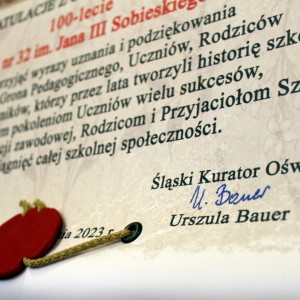 100-lecie
nr 32 im. Jana III Sobieskiego
wyrazy uznania i podziękowania
Grona Pedagogicznego, Uczniów, Rodziców
którzy przez lata tworzyli historię
pokoleniom Uczniów wielu sukcesów,
zawodowej, Rodzicom i Przyjaciołom
całej szkolnej społeczności.
Śląski Kurator
U. Bauer
Urszula Bauer
2023 r.